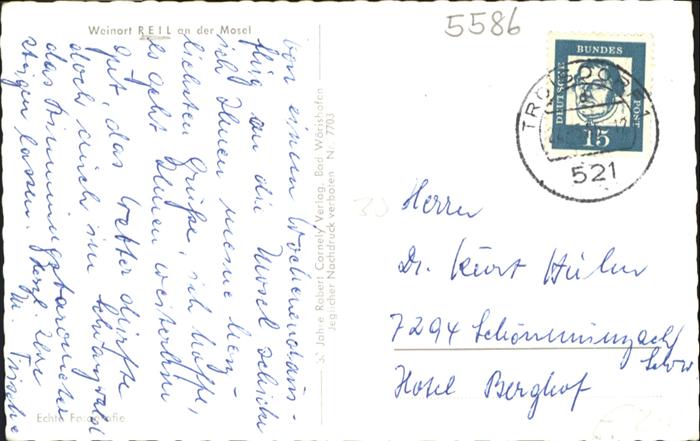 Weinort REIL an der Mosel
5586
von einem Wochenendaus-
flug an die Mosel schicke
ich Ihnen meine herz-
lichsten Grüße, ich hoffe,
es geht Ihnen weiterhin
gut, das Wetter dürfte
doch auch im Schwarzwald
das Stimmungsbarometer
steigen lassen. Herzl. Ihre
M.
Echte Fotografie
Jahre Robert Cornely Verlag, Bad Wörishofen
Jeglicher Nachdruck verboten Nr. 7703
DEUTSCHE BUNDES POST
15
TROISDORF 1
521
Herrn
Dr. Kurt
7294 Schönmünzach/
Schw
Hotel Berghof